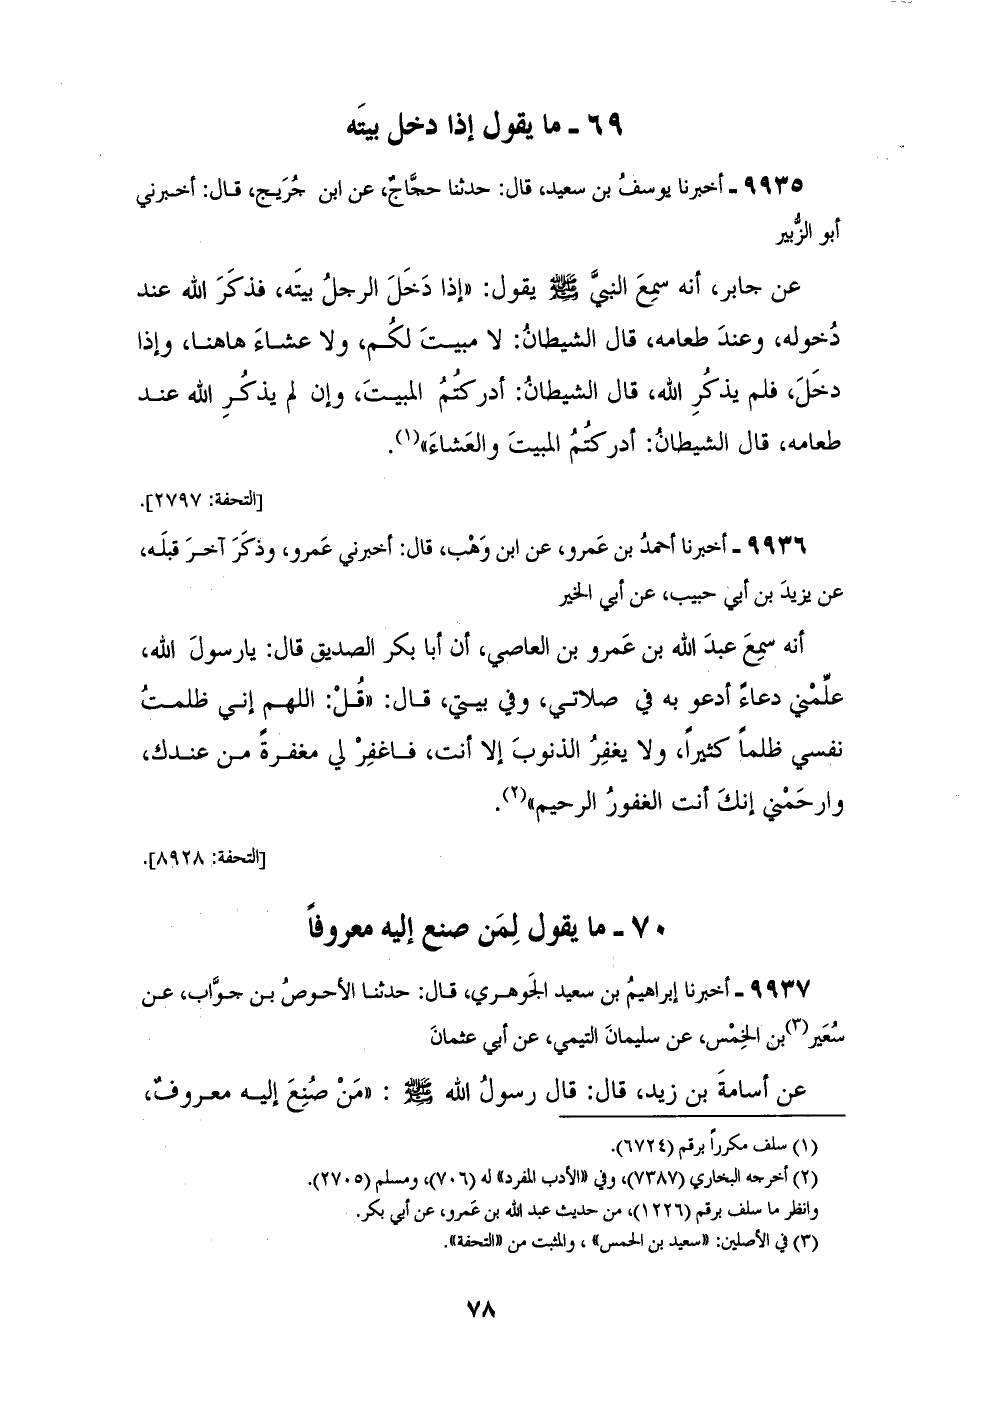 ٦٩ ـ ما يقول إذا دخل بيتَه
٩٩٣٥ ـ أخبرنا يوسفُ بن سعيد، قال: حدثنا حجَّاجٌ، عن ابن جُرَيج، قال: أخبرني
أبو الزُّبير
عن جابر، أنه سمِعَ النبيَّ ﷺ يقول: «إذا دَخَلَ الرجلُ بيتَه، فذكَرَ الله عند
دُخوله، وعندَ طعامه، قال الشيطانُ: لا مبيتَ لكُم، ولا عشاءَ هاهنا، وإذا
دخَلَ، فلم يذكُرِ الله، قال الشيطانُ: أدركتُمُ المبيتَ، وإن لم يذكُرِ الله عند
طعامه، قال الشيطانُ: أدركتُمُ المبيتَ والعَشاءَ»(١).
[التحفة: ٢٧٩٧].
٩٩٣٦ ـ أخبرنا أحمدُ بن عَمرو، عن ابن وَهْب، قال: أخبرني عَمرو، وذكَرَ آخرَ قبلَه،
عن يزيدَ بن أبي حبيب، عن أبي الخير
أنه سمِعَ عبدَ الله بن عَمرو بن العاصي، أن أبا بكر الصديق قال: يارسولَ الله،
علِّمْني دعاءً أدعو به في صلاتي، وفي بيتي، قال: «قُلْ: اللهم إني ظلمتُ
نفسي ظلماً كثيراً، ولا يغفِرُ الذنوبَ إلا أنت، فاغفِرْ لي مغفرةً من عندك،
وارحَمْني إنكَ أنت الغفورُ الرحيم»(٢).
[التحفة: ٨٩٢٨].
٧٠ ـ ما يقول لِمَن صنع إليه معروفاً
٩٩٣٧ ـ أخبرنا إبراهيمُ بن سعيد الجَوهري، قال: حدثنا الأحوصُ بن جوَّاب، عن
سُعَير(٣)بن الخِمْس، عن سليمانَ التيمي، عن أبي عثمانَ
عن أسامةَ بن زيد، قال: قال رسولُ الله ﷺ : «مَنْ صُنِعَ إليه معروفٌ،
(١) سلف مكرراً برقم (٦٧٢٤).
(٢) أخرجه البخاري (٧٣٨٧)، وفي «الأدب المفرد» له (٧٠٦)، ومسلم (٢٧٠٥).
وانظر ما سلف برقم (١٢٢٦)، من حديث عبد الله بن عَمرو، عن أبي بكر.
(٣) في الأصلين: «سعيد بن الخمس» ، والمثبت من «التحفة».
٧٨